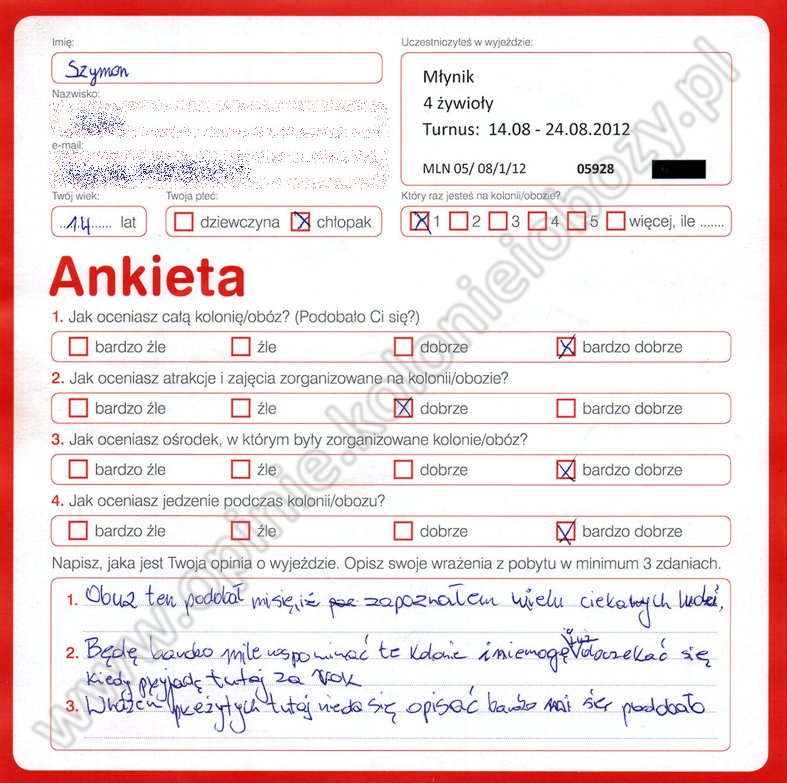 Imię:
Szymon
Uczestniczyłeś w wyjeździe:
Młynik
4 żywioły
Turnus: 14.08 - 24.08.2012
MLN 05/ 08/1/12 05928
Nazwisko:
e-mail:
Twój wiek:
..14...... lat
Twoja płeć:
dziewczyna chłopak
Który raz jesteś na kolonii/obozie?
1 2 3 4 5 więcej, ile .......
Ankieta
1. Jak oceniasz całą kolonię/obóz? (Podobało Ci się?)
bardzo źle źle dobrze bardzo dobrze
2. Jak oceniasz atrakcje i zajęcia zorganizowane na kolonii/obozie?
bardzo źle źle dobrze bardzo dobrze
3. Jak oceniasz ośrodek, w którym były zorganizowane kolonie/obóz?
bardzo źle źle dobrze bardzo dobrze
4. Jak oceniasz jedzenie podczas kolonii/obozu?
bardzo źle źle dobrze bardzo dobrze
Napisz, jaka jest Twoja opinia o wyjeździe. Opisz swoje wrażenia z pobytu w minimum 3 zdaniach.
1. Obuz ten podobał misię, iż zapoznałem wielu ciekawych ludzi,
2. Będę bardzo mile wspominać te kolonie i niemogę już doczekać się
kiedy przyjadę tutaj za rok
3. Wrażeń przeżytych tutaj nieda się opisać bardzo mi się podobało
www.opinie.kolonieiobozy.pl